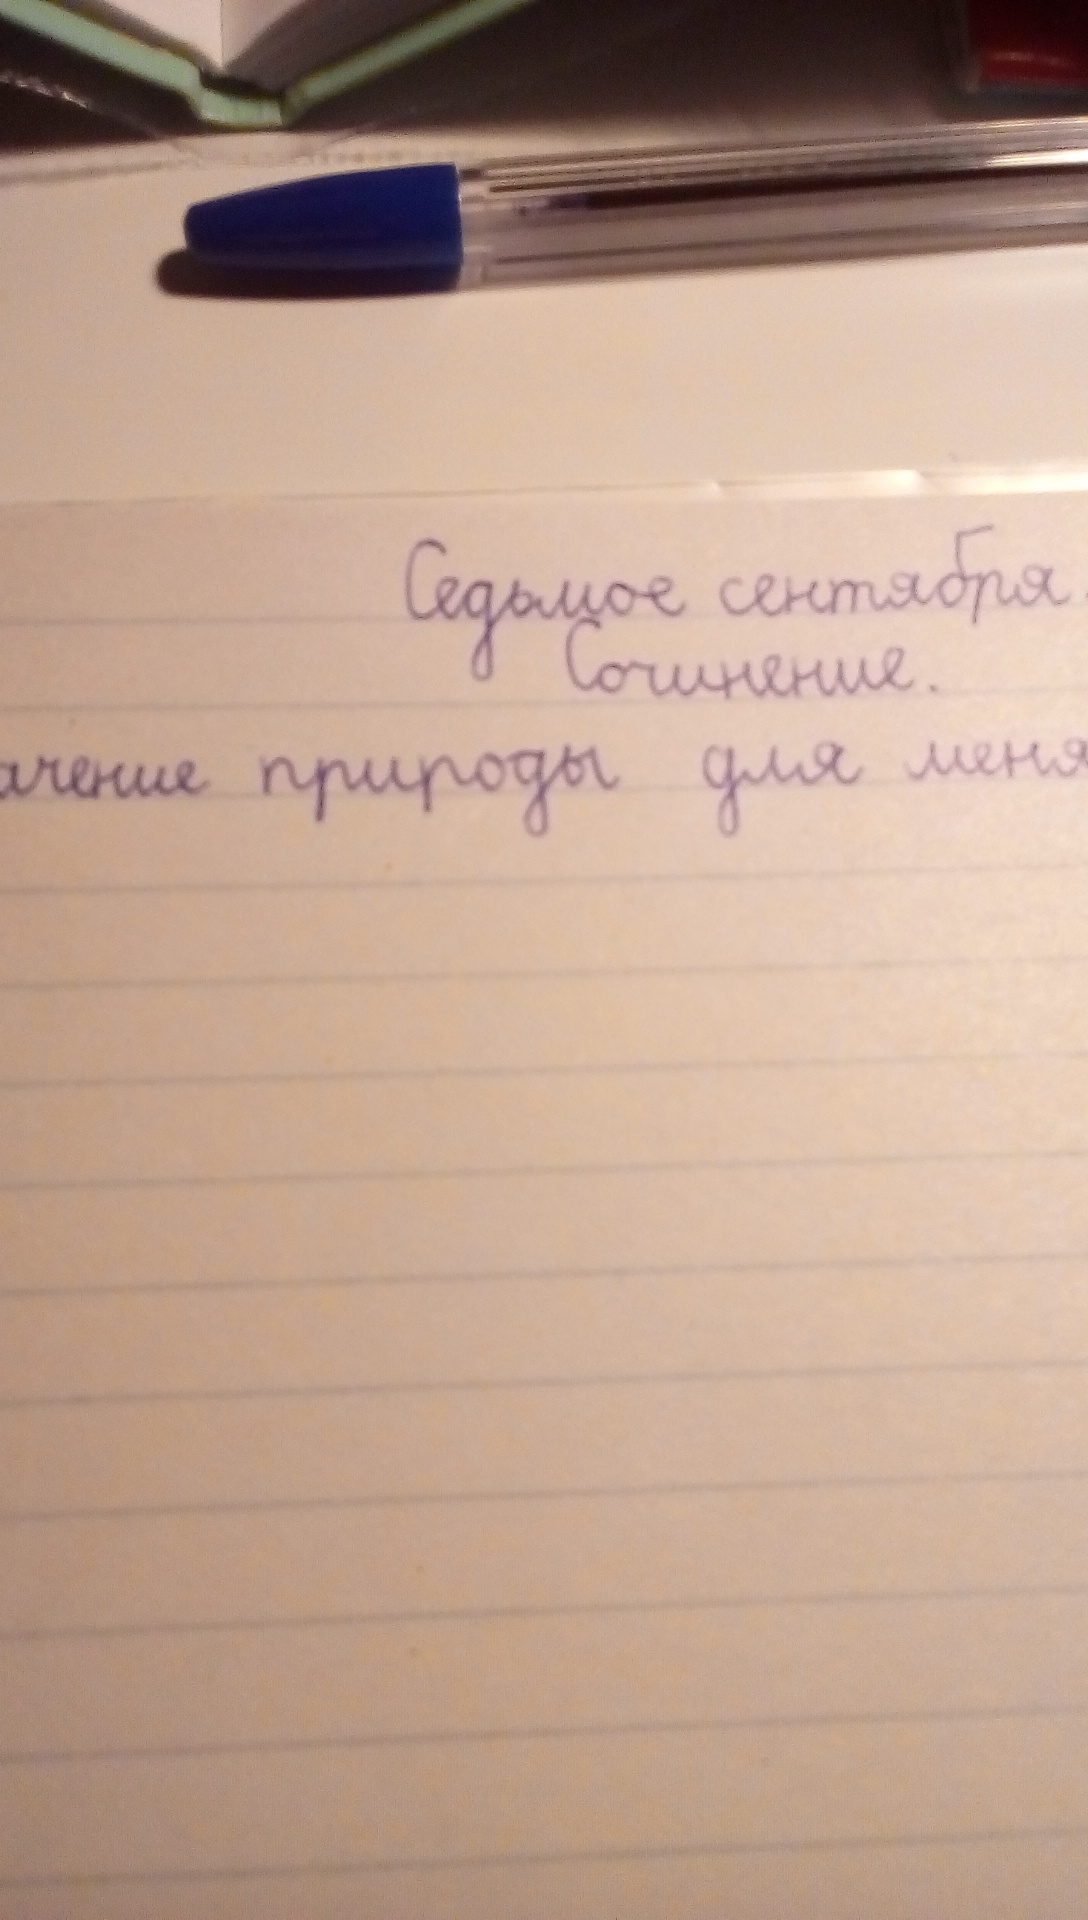 Седьмое сентября.
Сочинение.
ачение природы для меня